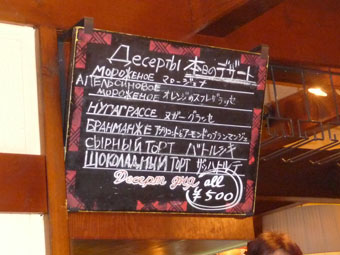 Десерты 本日のデザート
МОРОЖЕНОЕ マロージュナ
АПЕЛЬСИНОВОЕ
МОРОЖЕНОЕ オレンジのスフレグラッセ
НУГАГРАССЕ ヌガーグラッセ
БЛАНМАНЖЕ アーモンドのブランマンジェ
СЫРНЫЙ ТОРТ バトルシキ
ШОКОЛАДНЫЙ ТОРТ ザッハトルテ
Десерт all
¥500